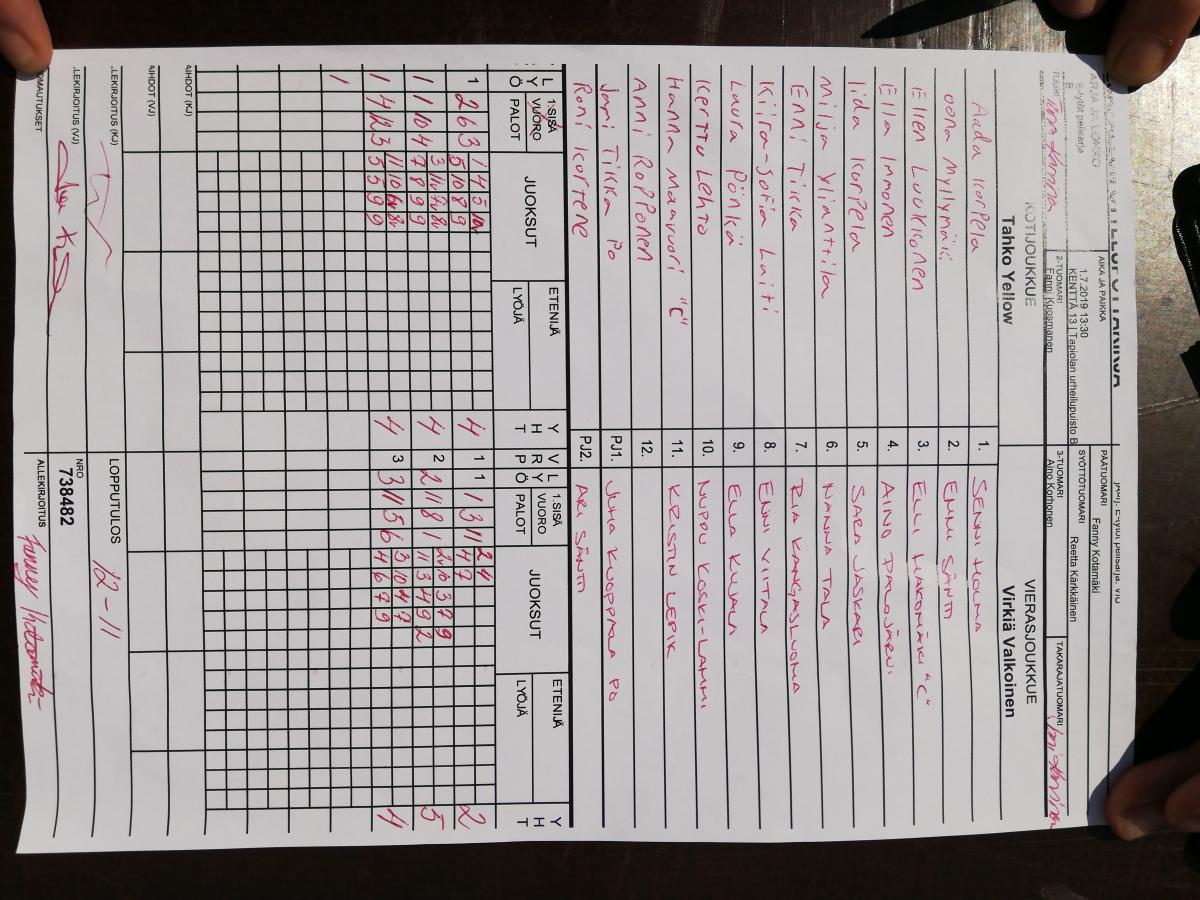 OTTELUPÖYTÄKIRJA
AIKA JA PAIKKA
1.7.2019 13:30
KENTTÄ 13 | Tapiolan urheilupuisto B
PÄÄTUOMARI
Fanny Kotamäki
SYÖTTÖTUOMARI
Reetta Kärkkäinen
2-TUOMARI
Fanni Kuosmanen
3-TUOMARI
Aino Korhonen
TAKARAJATUOMARI
KOTIJOUKKUE
Tahko Yellow
VIERASJOUKKUE
Virkiä Valkoinen
Aada Korpela 1. SENNI HOLMA
Oona Myllymäki 2. EMMI SÄNTI
Ellen Luukkonen 3. ELLI HAKOMÄKI "C"
Ella Immonen 4. AINO PALOJÄRVI
Iida Korpela 5. SARA JASKARI
Milja Ylianttila 6. NANNA TALA
Enni Tikka 7. RIA KANGASLUOMA
Kiira-Sofia Laiti 8. ENNI VIITALA
Laura Pönkä 9. ELLA KUJALA
Kerttu Lehto 10. NUPPU KOSKI-LAMMI
Hanna Maavuori "C" 11. KRISTIN LEPIK
Anni Ropponen 12.
Jari Tikka PO PJ1. JUHA KUOPPALA PO
Roni Kortene PJ2. ARI SÄNTI
L Y Ö
1.SISÄ
VUORO
PALOT
JUOKSUT
ETENIJÄ
LYÖJÄ
Y H T
V R P
L Y Ö
1.SISÄ
VUORO
PALOT
JUOKSUT
ETENIJÄ
LYÖJÄ
Y H T
1 2 6 3 1 4 5 10 4 1 1 1 3 11 2 4 2
5 10 8 9 4 7
1 10 4 3 11 7 8 4 2 2 11 8 1 2 10 3 7 9 5
7 8 9 9 11 3 4 9 2
1 4 2 3 11 10 6 8 4 3 3 11 5 6 3 10 4 7 4
5 5 9 9 4 6 7 9
1
AIHDOT (KJ)
AIHDOT (VJ)
LOPPUTULOS 12-11
LEKIRJOITUS (KJ)
LEKIRJOITUS (VJ)
NRO
738482
OMAUTUKSET
ALLEKIRJOITUS